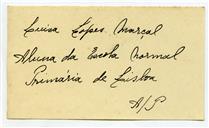 Luisa Lopes Marçal
Aluna da Escola Normal
Primária de Lisboa
A/P